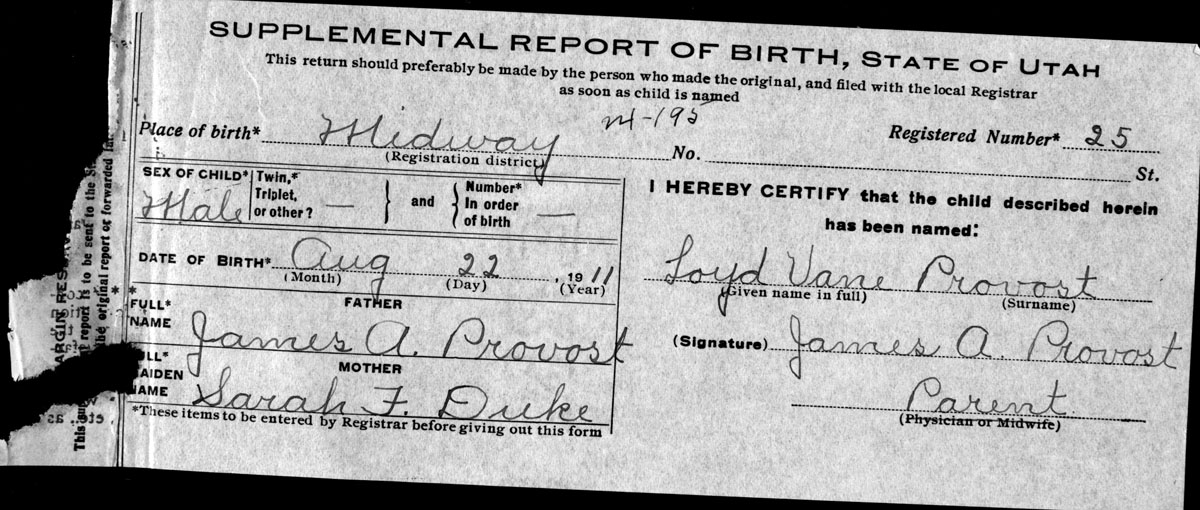 SUPPLEMENTAL REPORT OF BIRTH, STATE OF UTAH
This return should preferably be made by the person who made the original, and filed with the local Registrar
as soon as child is named
M-195
Place of birth* Midway No. St.
(Registration district)
Registered Number* 25
SEX OF CHILD* Male
Twin,*
Triplet,
or other? —
and
Number*
In order
of birth —
DATE OF BIRTH* Aug 22, 1911
(Month) (Day) (Year)
FATHER
FULL*
NAME James A. Provost
MOTHER
ULL*
AIDEN
AME Sarah F. Duke
*These items to be entered by Registrar before giving out this form
I HEREBY CERTIFY that the child described herein
has been named:
Loyd Vane Provost
(Given name in full) (Surname)
(Signature) James A. Provost
Parent
(Physician or Midwife)
ARGIN RES
report is to be sent to the S
the original report or forwarded